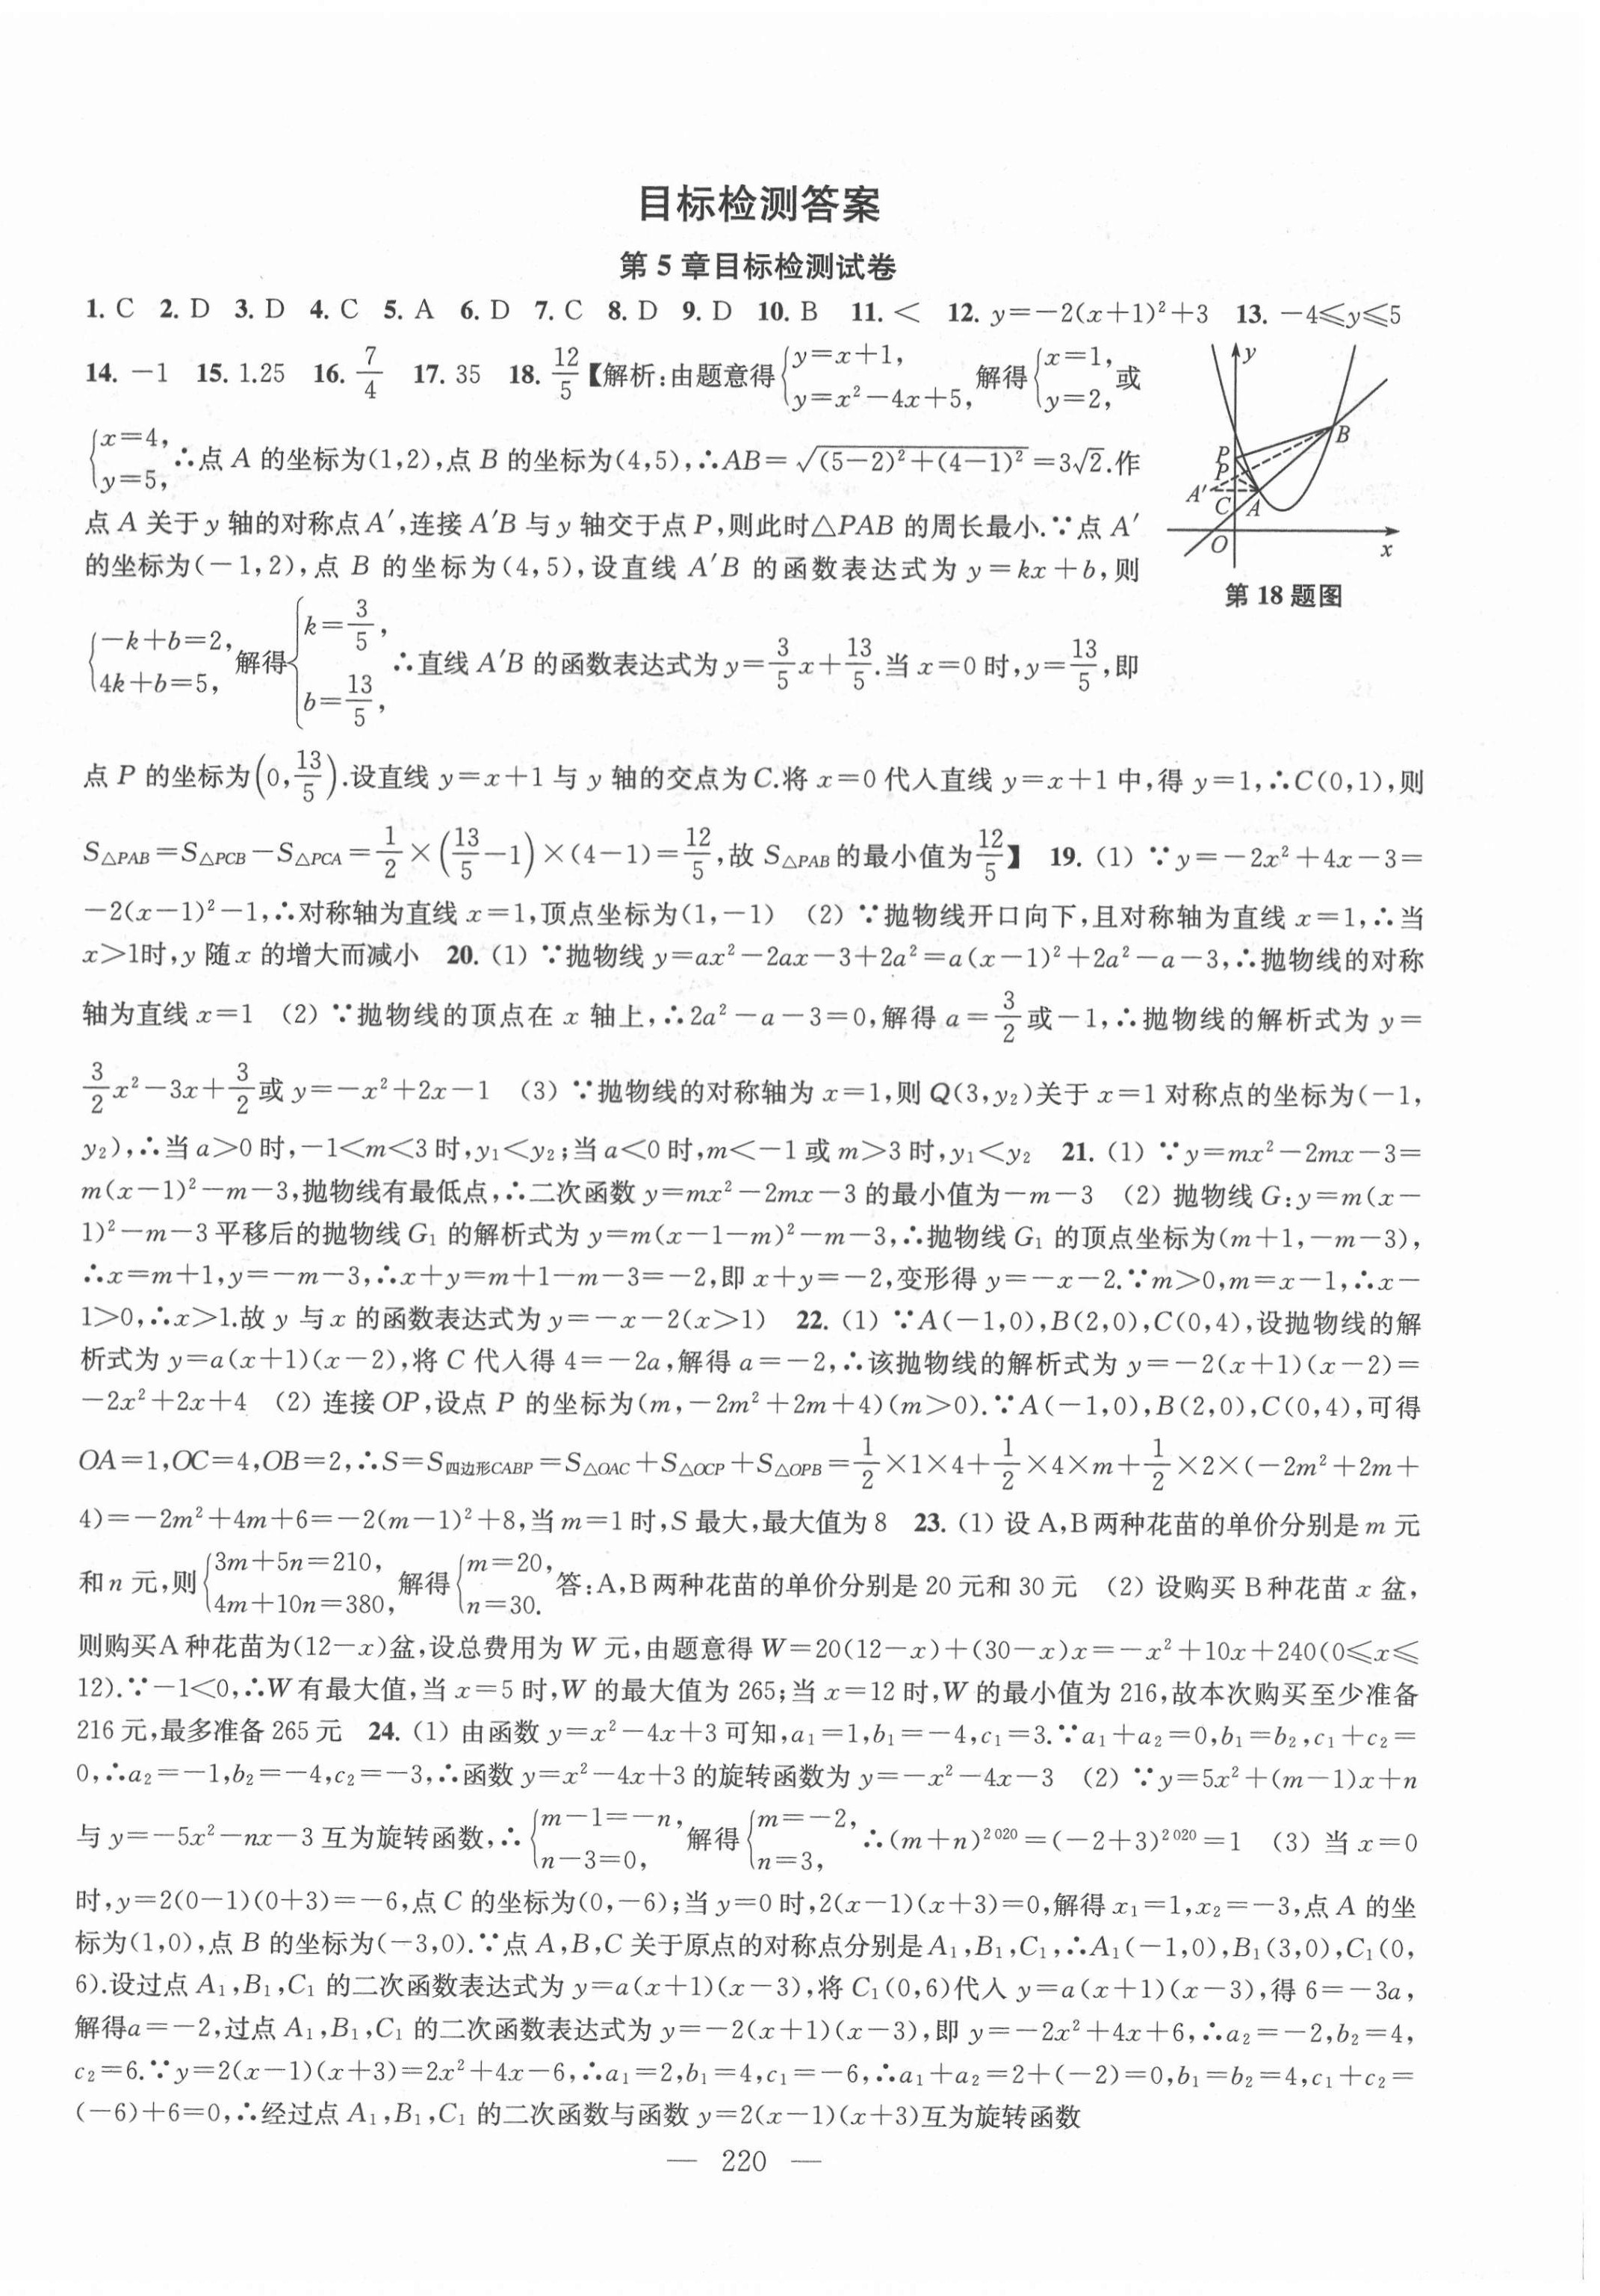 目标检测答案
第 5 章目标检测试卷
1. C 2. D 3. D 4. C 5. A 6. D 7. C 8. D 9. D 10. B 11. < 12. y=-2(x+1)²+3 13. -4≤y≤5
14. -1 15. 1.25 16. 7/4 17. 35 18. 12/5【解析:由题意得{y=x+1, y=x²-4x+5, 解得{x=1, y=2, 或
{x=4, y=5, ∴点 A 的坐标为(1,2),点 B 的坐标为(4,5),∴AB=√((5-2)²+(4-1)²)=3√2.作
点 A 关于 y 轴的对称点 A′,连接 A′B 与 y 轴交于点 P,则此时△PAB 的周长最小.∵点 A′
的坐标为(-1,2),点 B 的坐标为(4,5),设直线 A′B 的函数表达式为 y=kx+b,则
{-k+b=2, 4k+b=5, 解得{k=3/5, b=13/5, ∴直线 A′B 的函数表达式为 y=3/5x+13/5.当 x=0 时,y=13/5,即
y
P
P
B
A′
C
A
O
x
第 18 题图
点 P 的坐标为(0,13/5).设直线 y=x+1 与 y 轴的交点为 C.将 x=0 代入直线 y=x+1 中,得 y=1,∴C(0,1),则
S△PAB=S△PCB-S△PCA=1/2×(13/5-1)×(4-1)=12/5,故 S△PAB的最小值为12/5】 19. (1) ∵y=-2x²+4x-3=
-2(x-1)²-1,∴对称轴为直线 x=1,顶点坐标为(1,-1) (2) ∵抛物线开口向下,且对称轴为直线 x=1,∴当
x>1时,y 随 x 的增大而减小 20. (1) ∵抛物线 y=ax²-2ax-3+2a²=a(x-1)²+2a²-a-3,∴抛物线的对称
轴为直线 x=1 (2) ∵抛物线的顶点在 x 轴上,∴2a²-a-3=0,解得 a=3/2或-1,∴抛物线的解析式为 y=
3/2x²-3x+3/2或 y=-x²+2x-1 (3) ∵抛物线的对称轴为 x=1,则 Q(3,y₂)关于 x=1 对称点的坐标为(-1,
y₂),∴当 a>0 时,-1<m<3 时,y₁<y₂;当 a<0 时,m<-1 或 m>3 时,y₁<y₂ 21. (1) ∵y=mx²-2mx-3=
m(x-1)²-m-3,抛物线有最低点,∴二次函数 y=mx²-2mx-3 的最小值为-m-3 (2) 抛物线 G:y=m(x-
1)²-m-3 平移后的抛物线 G₁ 的解析式为 y=m(x-1-m)²-m-3,∴抛物线 G₁ 的顶点坐标为(m+1,-m-3),
∴x=m+1,y=-m-3,∴x+y=m+1-m-3=-2,即 x+y=-2,变形得 y=-x-2.∵m>0,m=x-1,∴x-
1>0,∴x>1.故 y 与 x 的函数表达式为 y=-x-2(x>1) 22. (1) ∵A(-1,0),B(2,0),C(0,4),设抛物线的解
析式为 y=a(x+1)(x-2),将 C 代入得 4=-2a,解得 a=-2,∴该抛物线的解析式为 y=-2(x+1)(x-2)=
-2x²+2x+4 (2) 连接 OP,设点 P 的坐标为(m,-2m²+2m+4)(m>0).∵A(-1,0),B(2,0),C(0,4),可得
OA=1,OC=4,OB=2,∴S=S四边形CABP=S△OAC+S△OCP+S△OPB=1/2×1×4+1/2×4×m+1/2×2×(-2m²+2m+
4)=-2m²+4m+6=-2(m-1)²+8,当 m=1 时,S 最大,最大值为 8 23. (1) 设 A,B 两种花苗的单价分别是 m 元
和 n 元,则{3m+5n=210, 4m+10n=380, 解得{m=20, n=30. 答:A,B 两种花苗的单价分别是 20 元和 30 元 (2) 设购买 B 种花苗 x 盆,
则购买A 种花苗为(12-x)盆,设总费用为 W 元,由题意得 W=20(12-x)+(30-x)x=-x²+10x+240(0≤x≤
12).∵-1<0,∴W 有最大值,当 x=5 时,W 的最大值为 265;当 x=12 时,W 的最小值为 216,故本次购买至少准备
216 元,最多准备 265 元 24. (1) 由函数 y=x²-4x+3 可知,a₁=1,b₁=-4,c₁=3.∵a₁+a₂=0,b₁=b₂,c₁+c₂=
0,∴a₂=-1,b₂=-4,c₂=-3,∴函数 y=x²-4x+3 的旋转函数为 y=-x²-4x-3 (2) ∵y=5x²+(m-1)x+n
与 y=-5x²-nx-3 互为旋转函数,∴{m-1=-n, n-3=0, 解得{m=-2, n=3, ∴(m+n)²⁰²⁰=(-2+3)²⁰²⁰=1 (3) 当 x=0
时,y=2(0-1)(0+3)=-6,点 C 的坐标为(0,-6);当 y=0 时,2(x-1)(x+3)=0,解得 x₁=1,x₂=-3,点 A 的坐
标为(1,0),点 B 的坐标为(-3,0).∵点 A,B,C 关于原点的对称点分别是 A₁,B₁,C₁,∴A₁(-1,0),B₁(3,0),C₁(0,
6).设过点 A₁,B₁,C₁ 的二次函数表达式为 y=a(x+1)(x-3),将 C₁(0,6)代入 y=a(x+1)(x-3),得 6=-3a,
解得a=-2,过点 A₁,B₁,C₁ 的二次函数表达式为 y=-2(x+1)(x-3),即 y=-2x²+4x+6,∴a₂=-2,b₂=4,
c₂=6.∵y=2(x-1)(x+3)=2x²+4x-6,∴a₁=2,b₁=4,c₁=-6,∴a₁+a₂=2+(-2)=0,b₁=b₂=4,c₁+c₂=
(-6)+6=0,∴经过点 A₁,B₁,C₁ 的二次函数与函数 y=2(x-1)(x+3)互为旋转函数
— 220 —